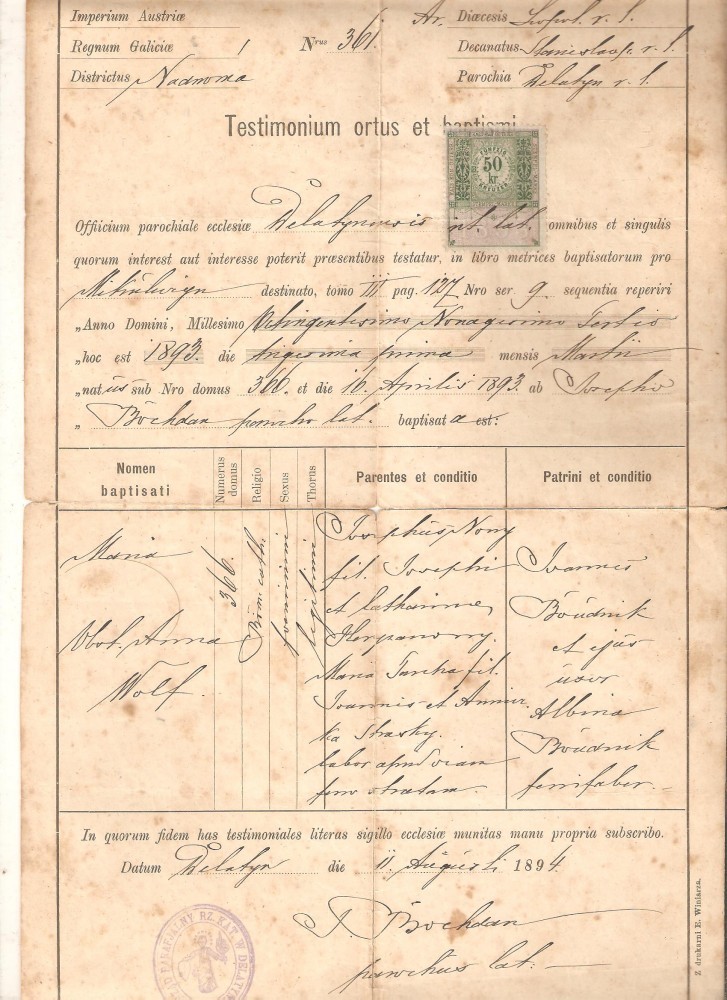 Imperium Austriæ Ar. Diœcesis Leopol. r. l.
Regnum Galiciæ Nrus 361. Decanatus Stanislaop. r. l.
Districtus Nadworna Parochia Delatyn r. l.
Testimonium ortus et baptismi
FÜNFZIG
50
kr.
KREUZER
Officium parochiale ecclesiæ Delatynensis rit. lat. omnibus et singulis
quorum interest aut interesse poterit præsentibus testatur, in libro metrices baptisatorum pro
Mikuliczyn destinato, tomo III pag. 127 Nro ser. 9. sequentia reperiri
„Anno Domini, Millesimo Octingentesimo Nonagesimo Tertio
„hoc est 1893. die trigesima prima mensis Martii
„natus sub Nro domus 366. et die 16. Aprilis 1893. ab Josepho
„ Bochdan parocho lat. baptisata est:
Nomen baptisati Numerus domus Religio Sexus Thorus Parentes et conditio Patrini et conditio
Maria
Obst. Anna
Wolf.
366.
Rom. cath.
foeminini
legitimi
Josephus Nowy
fil. Josephi
et Catharinae
Maria Tancha fil.
Joannis et Annae
labor. apud viam
ferro stratam.
Joannes
Boudnik
et ejus
uxor
Albina
Boudnik
ferrifaber.
In quorum fidem has testimoniales literas sigillo ecclesiæ munitas manu propria subscribo.
Datum Delatyn die 11 Augusti 1894.
J. Bochdan
parochus lat.
PARAFIALNY RZ. KAT. W DELATYN
Z drukarni E. Winiarza.